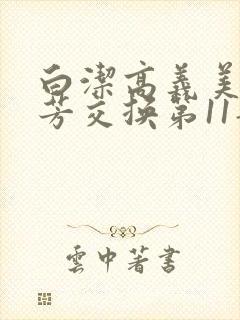 白潔高義美
芳交換第11
雲中著書